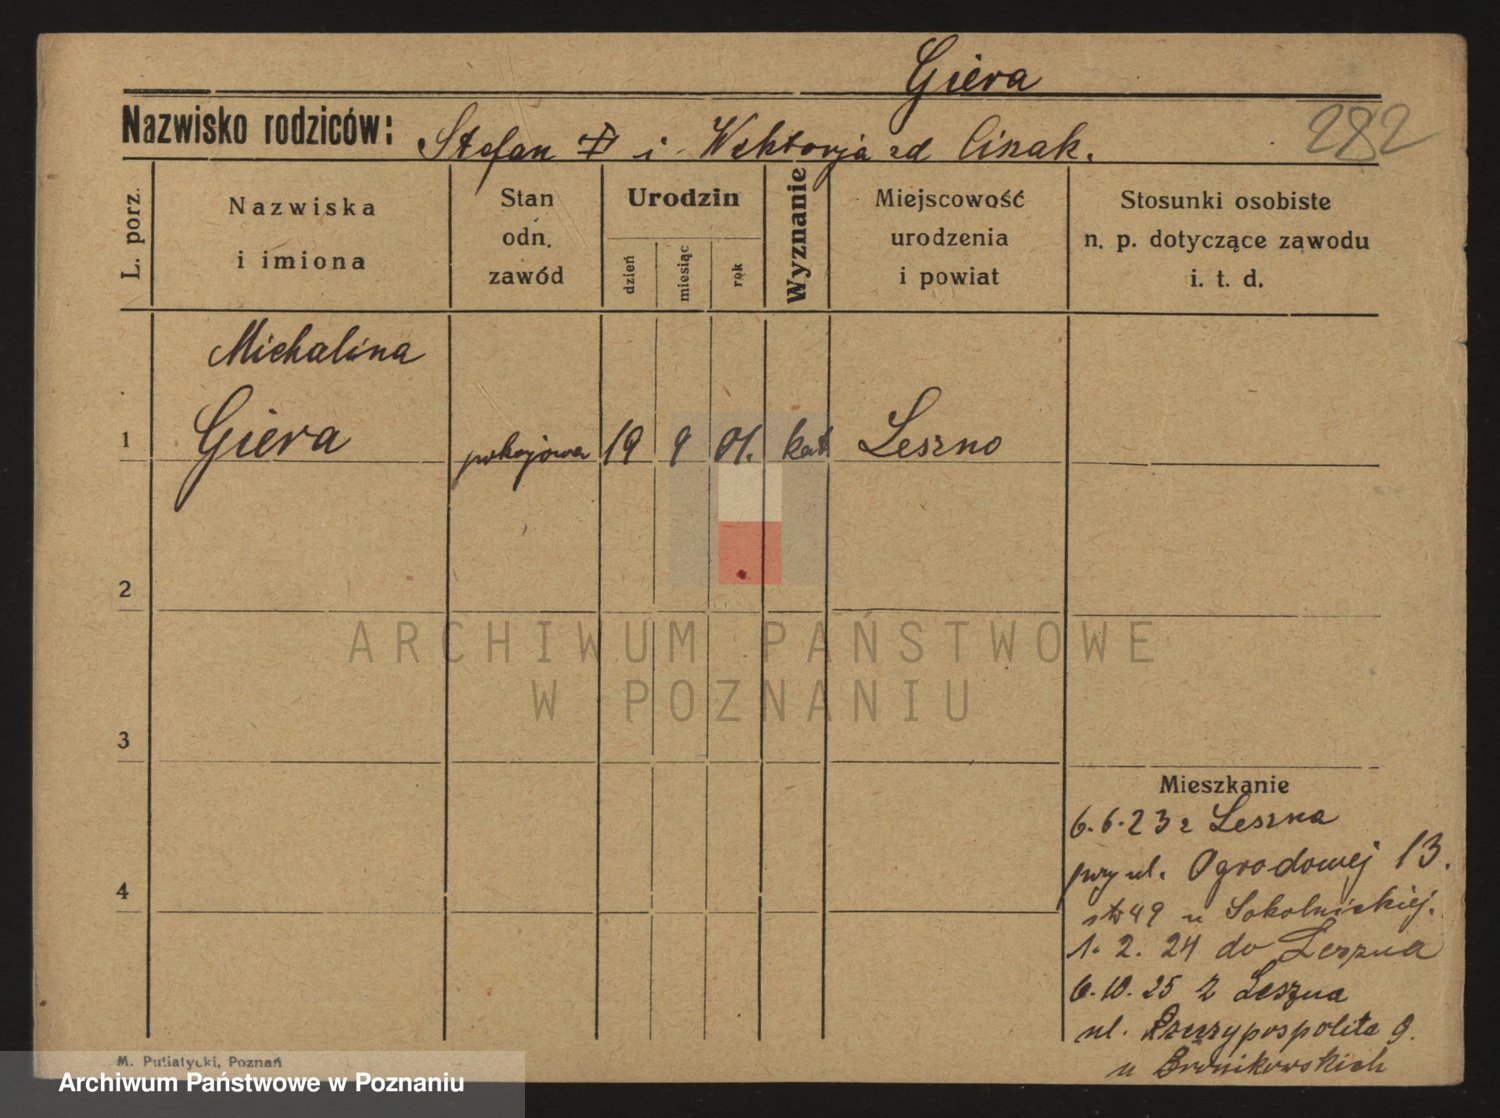 Giera
Nazwisko rodziców: Stefan i Wiktorja zd Cizak.
282
L. porz.
Nazwiska
i imiona
Stan
odn.
zawód
Urodzin
dzień
miesiąc
rok
Wyznanie
Miejscowość
urodzenia
i powiat
Stosunki osobiste
n. p. dotyczące zawodu
i. t. d.
Michalina
1 Giera pokojowa 19 9 01. kat Leszno
2
3
4
Mieszkanie
6.6.23 z Leszna
przy ul. Ogrodowej 13.
u Sokolnickiej.
1. 2. 24 do Leszna
6.10.25 z Leszna
ul. Rzeczypospolita 9.
u Bronikowskich
M. Putiatycki, Poznań
ARCHIWUM PAŃSTWOWE
W POZNANIU
Archiwum Państwowe w Poznaniu